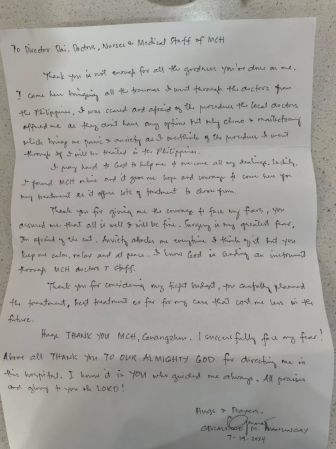 To Director Dai, Doctors, Nurses & Medical Staff of MCH
Thank you is not enough for all the goodness you've done on me.
I came here bringing all the traumas I went through the doctors from
the Philippines. I was scared and afraid of the procedures the local doctors
offered me as they don't have any options but only chemo & mastectomy
which bring me fears & anxiety as I overthink of the procedure I went
through if I will be treated in the Philippines.
I pray hard to God to help me to overcome all my . Luckily,
I found MCH online and it gives me hope and courage to come here for
my treatment as it offers lots of treatment to choose from.
Thank you for giving me the courage to face my fears, you
assured me that all is well & will be fine. Surgery is my greatest fear,
I'm afraid of the cut. Anxiety attacks me everytime I think of it but you
keep me calm, relax and at peace. I know God is sending an instrument
through MCH doctors & staff.
Thank you for considering my tight budget, you carefully planned
the treatment, best treatment so far for my case that cost me less in the
future.
Huge THANK YOU MCH, Guangzhou. I successfully face my fear!
Above all THANK YOU TO OUR ALMIGHTY GOD for directing me in
this hospital. I know it is YOU who guided me always. All praises
and glory to you oh LORD!
Hugs & Prayers,
7-29-2024